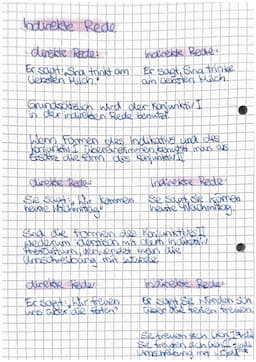 Indirekte Rede
direkte Rede: indirekte Rede:
Er sagt: „Sina trinkt am Er sagt, Sina trinke
liebsten Milch." am liebsten Milch.
Grundsätzlich wird der Konjunktiv I
in der indirekten Rede benutzt.
Wenn Formen des Indikativs und des
Konjunktiv I übereinstimmen benutzt man als
Ersatz die Form des Konjunktiv II
direkte Rede: indirekte Rede:
Sie sagt: „Wir kommen Sie sagt, sie kämen
heute Nachmittag." heute Nachmittag.
Sind die Formen des Konjunktivs II
wiederum identisch mit dem Indikativ
Präteritum, verwendet man die
Umschreibung mit würde
direkte Rede: indirekte Rede:
Er sagt: „Wir freuen Er sagt, Sie würden sich
uns über die Ferien" über die Ferien freuen.
Sie freuen sich
Sie freuten sich
Umschreibung mit